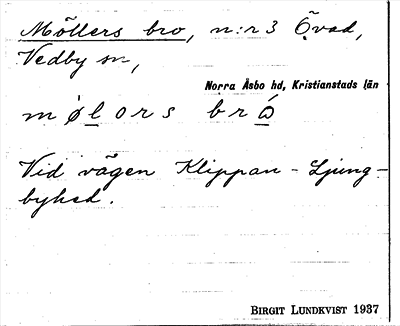 Möllers bro, n:r 3 Övad,
Vedby sn,
Norra Åsbo hd, Kristianstads län
møl ors bró
Vid vägen Klippan - Ljung-
byhed.
BIRGIT LUNDKVIST 1937